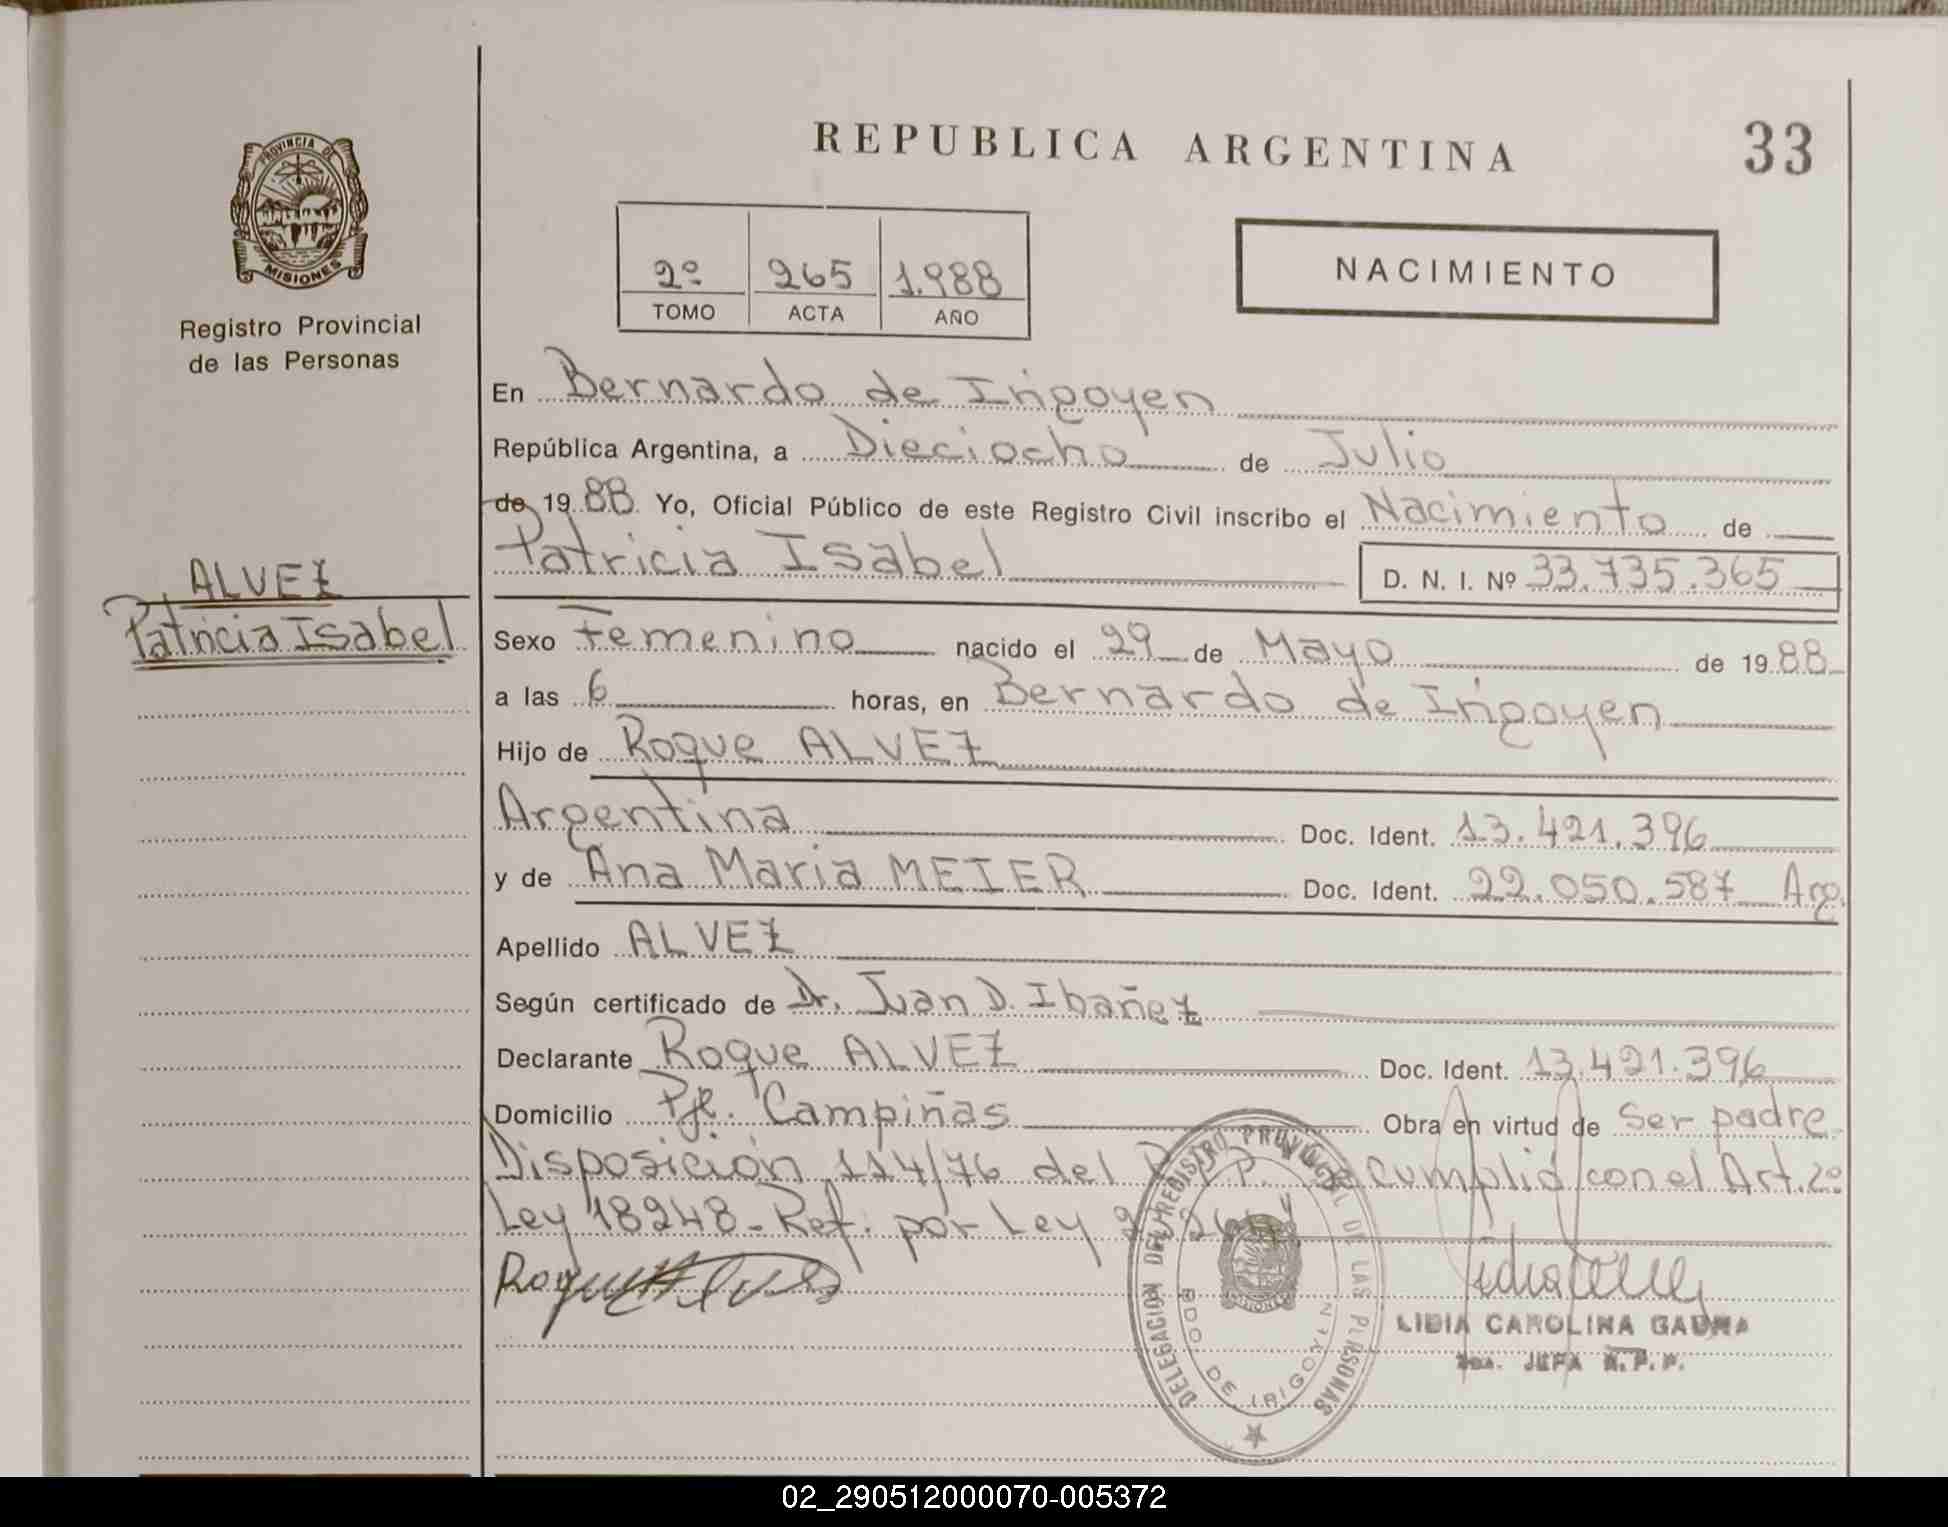 PROVINCIA DE
MISIONES
Registro Provincial
de las Personas
ALVEZ
Patricia Isabel
REPUBLICA ARGENTINA
33
2º 265 1.988
TOMO ACTA AÑO
NACIMIENTO
En Bernardo de Irigoyen
República Argentina, a Dieciocho de Julio
de 19 88 Yo, Oficial Público de este Registro Civil inscribo el Nacimiento de
Patricia Isabel D. N. I. Nº 33.735.365
Sexo Femenino nacido el 29 de Mayo de 19 88
a las 6 horas, en Bernardo de Irigoyen
Hijo de Roque ALVEZ
Argentina Doc. Ident. 13.421.396
y de Ana Maria MEIER Doc. Ident. 22.050.587 Arg.
Apellido ALVEZ
Según certificado de Dr. Juan D. Ibañez
Declarante Roque ALVEZ Doc. Ident. 13.421.396
Domicilio Pje. Campiñas Obra en virtud de Ser padre
Disposición 114/76 del R.P.P. cumplió con el Art. 2º
Ley 18248 - Ref. por Ley
Roque Alves
DELEGACION DEL REGISTRO PROVINCIAL DE LAS PERSONAS
BDO. DE IRIGOYEN
MISIONES
LIDIA CAROLINA GAUNA
JEFA R.P.P.
02_290512000070-005372